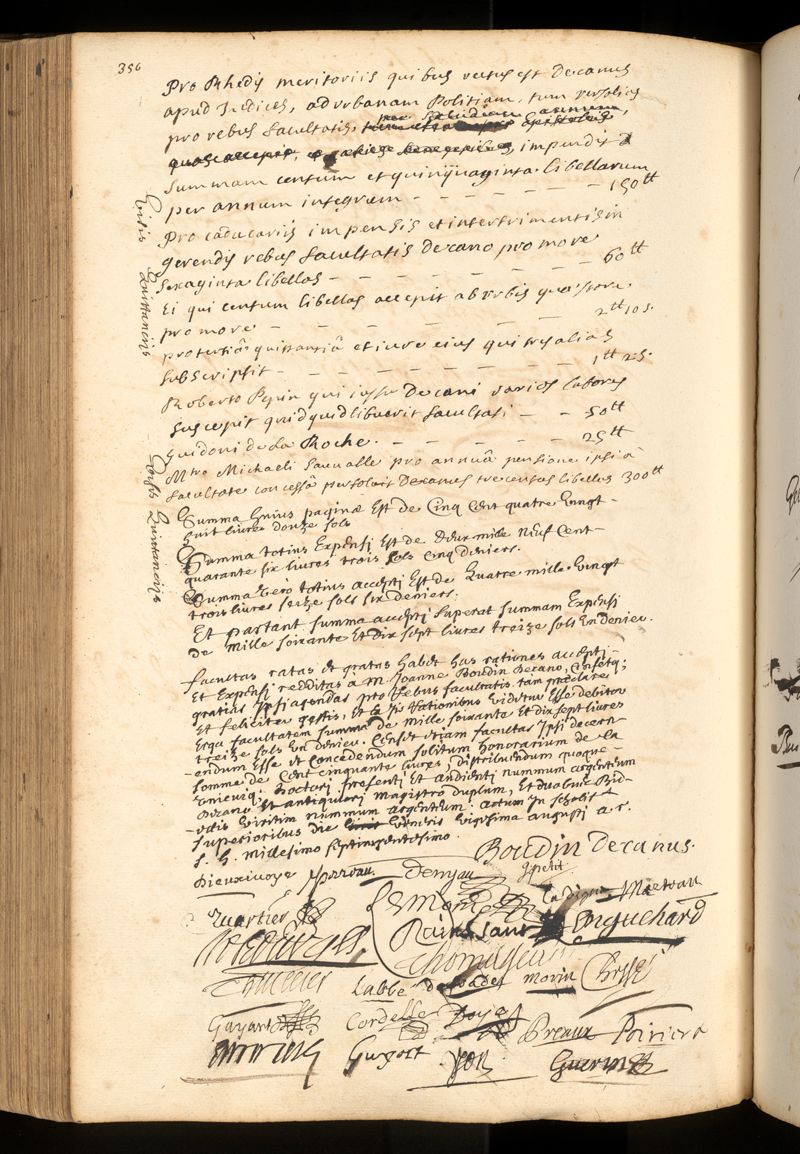 356
Pro Rhedis meritoriis quibus vectus est Decanus
apud Judices, ad urbanam Politiam, tum
pro rebus facultatis,
impendit
summam centum et quinquaginta libellarum
per annum integrum - - - - - - - 150 tt
Visis Quittanciis
Pro caducariis impensis et intertrimentis in
gerendis rebus facultatis Decano pro more
sexaginta libellas - - - - - - - 60 tt
Ei qui centum libellas accepit ab urbis quaestore
pro more - - - - - - - 2 tt 10 s.
pro tertiâ quittantiâ et jure ejus qui tres alias
subscripsit - - - - - - - 1 tt 2 s.
Roberto Pepin qui jussu Decani varios labores
suscepit quidquid libuerit facultati - - 50 tt
Guidoni de la Roche. - - - - - 25 tt
Visis Quittanciis
Mtro Michaeli Sauvalle pro annuâ pensione ipsi a
facultate concessâ persolvit Decanus trecentas libellas 300 tt
Summa hujus paginae Est de Cinq Cent quatre vingt
huit livres douze sols
Summa totius Expensi Est de deux mille neuf Cent
quarante six livres trois sols cinq deniers.
Summa vero totius accepti Est de Quatre mille vingt
trois livres seize sols six deniers.
Et partant summa accepti superat summam Expensi
de Mille soixante Et dix sept livres treize sols un denier.
facultas ratas et gratas habet has rationes accepti
Et Expensi redditas a M. Joanne Boudin Decano, Censetq;
gratias ipsi agendas pro rebus facultatis tam praeclare
Et feliciter gestis, Et Ex iis rationibus videtur Esse debitor
Erga facultatem summa de mille soixante Et dix sept livres
treize sols un denier. Censet etiam facultas ipsi decern-
-endum Esse et concedendum solitum honorarium de la
somme de Cent cinquante livres, distribuendum quoque
unicuiq; Doctori presenti Et audienti nummum argenteum
Decano Et antiquiori magistro duplum, Et duobus Bid-
-ellis viritim nummum argenteum. actum in scholis
superioribus die veneris vigesima augusti a. r.
s. h. millesimo septingentesimo.
Boudin Decanus.
Dieuxivoye Moreau Denyau Petit
Mareau
Quartier
Rainssant Enguehard
Thomasseau
Labbé Morin
Gayant Cordelle Doye Preaux Poirier
Guyart Yon Guerin